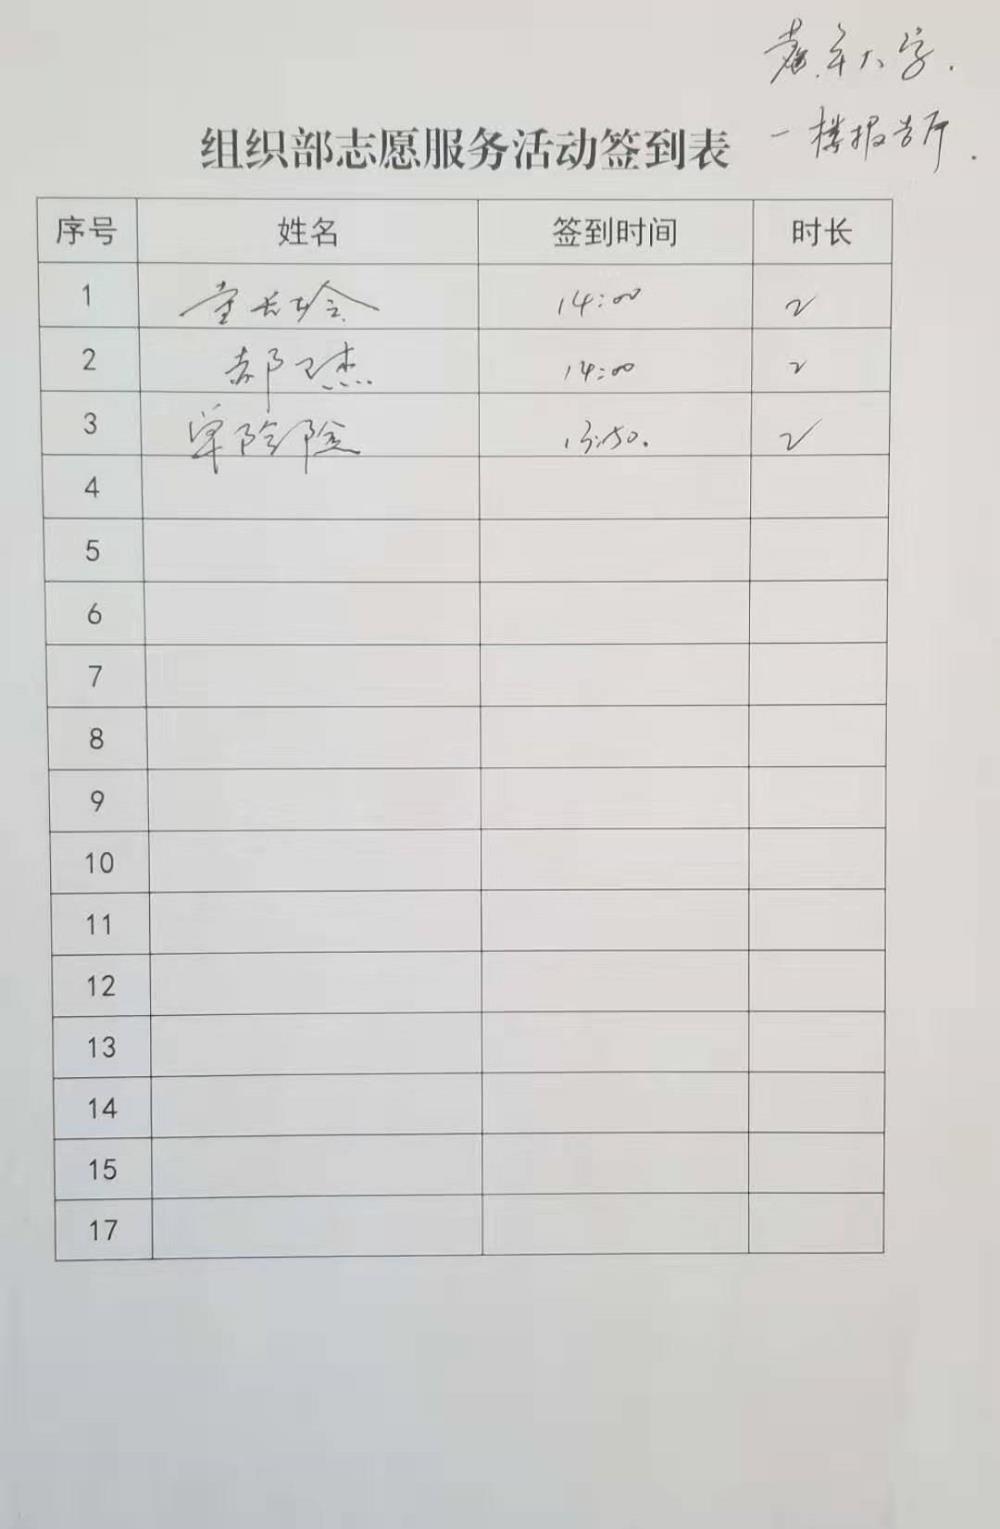 大学.
组织部志愿服务活动签到表
一楼报告厅.
序号 姓名 签到时间 时长
1 14:00 2
2 郝卫杰 14:00 2
3 单险险 13:50. 2
4
5
6
7
8
9
10
11
12
13
14
15
17